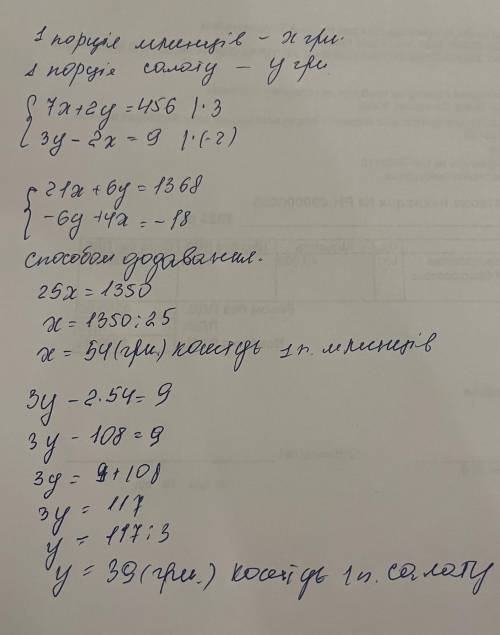 1 порція млинців – x грн.
1 порція салату – y грн.
7x+2y=456 |·3
3y-2x=9 |·(-2)
21x+6y=1368
-6y+4x=-18
способом додавання.
25x=1350
x=1350:25
x=54(грн.) коштує 1 п. млинців
3y-2·54=9
3y-108=9
3y=9+108
3y=117
y=117:3
y=39(грн.) коштує 1 п. салату